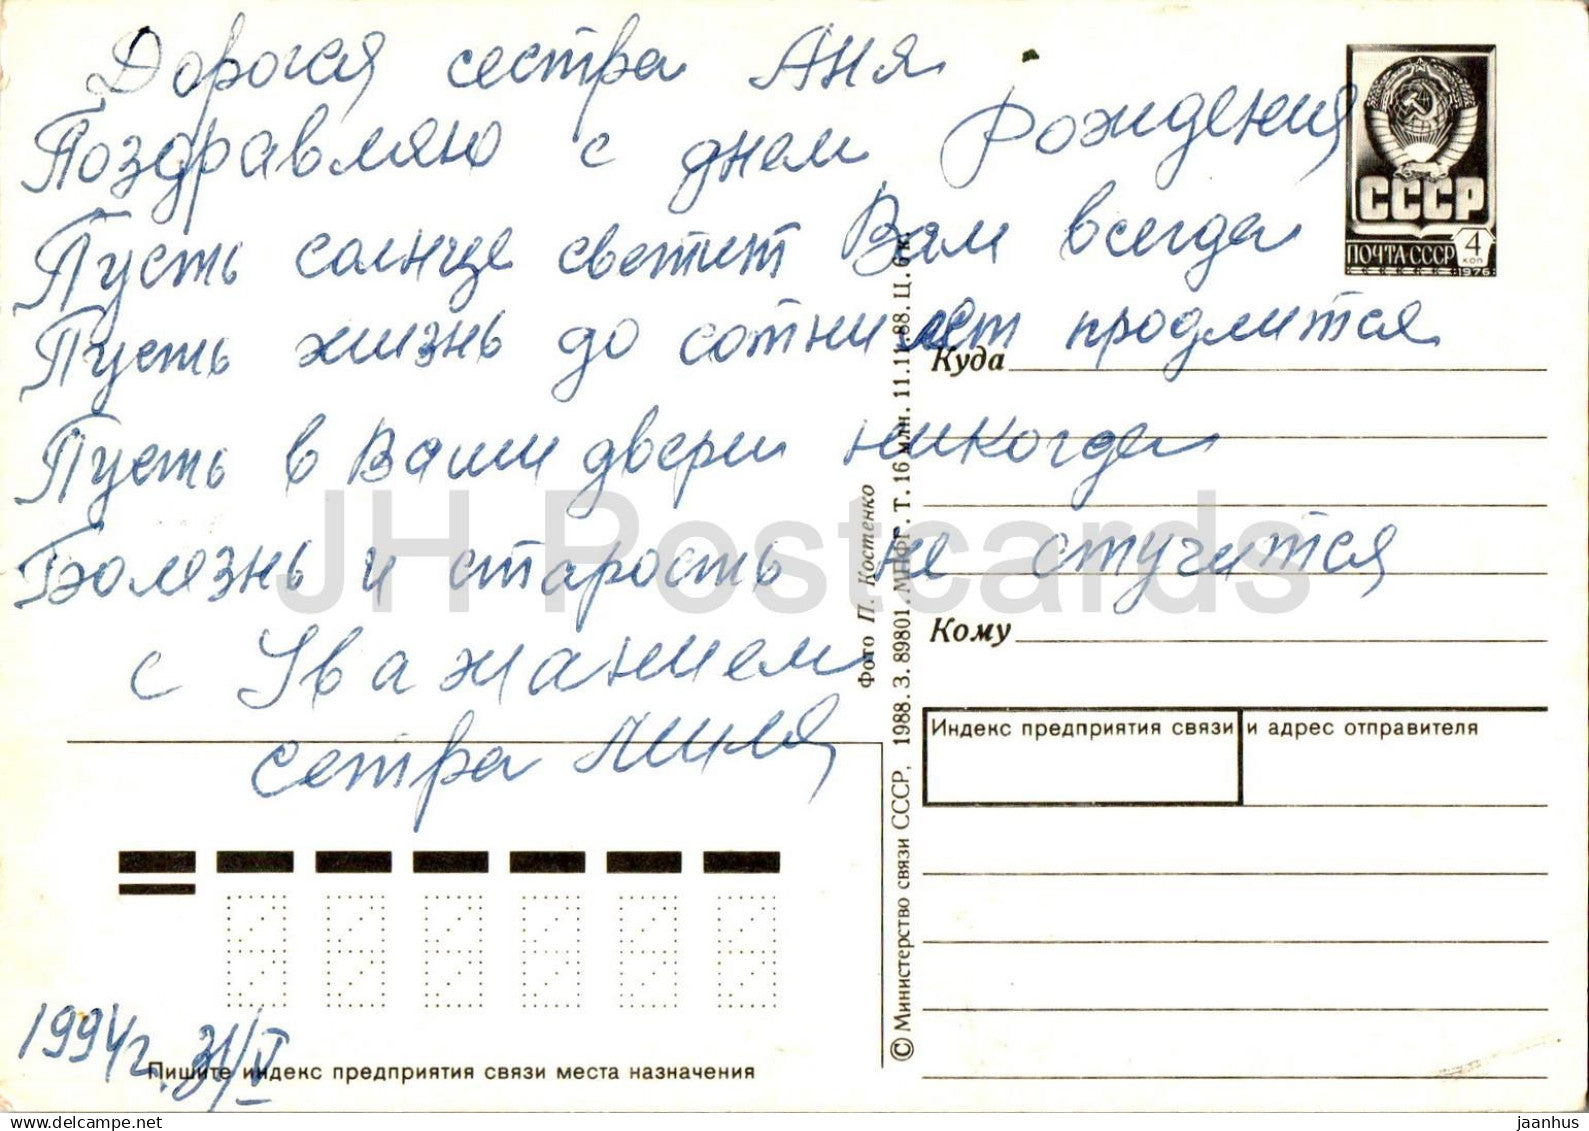 Дорогая сестра Аня
Поздравляю с днем Рождения
Пусть солнце светит Вам всегда
Пусть жизнь до сотни лет продлится
Пусть в Ваши двери никогда
Болезнь и старость не стучится
с Уважением
сетра Лиля
1994г. 31/V
Пишите индекс предприятия связи места назначения
СССР
ПОЧТА СССР 4 КОП
1976
Куда
Кому
Индекс предприятия связи и адрес отправителя
Фото П. Костенко
© Министерство связи СССР, 1988. З. 89801. МПФГ. Т. 16 млн. 11.11.88. Ц. 6 к.
JH Postcards
delcampe.net
jaanhus